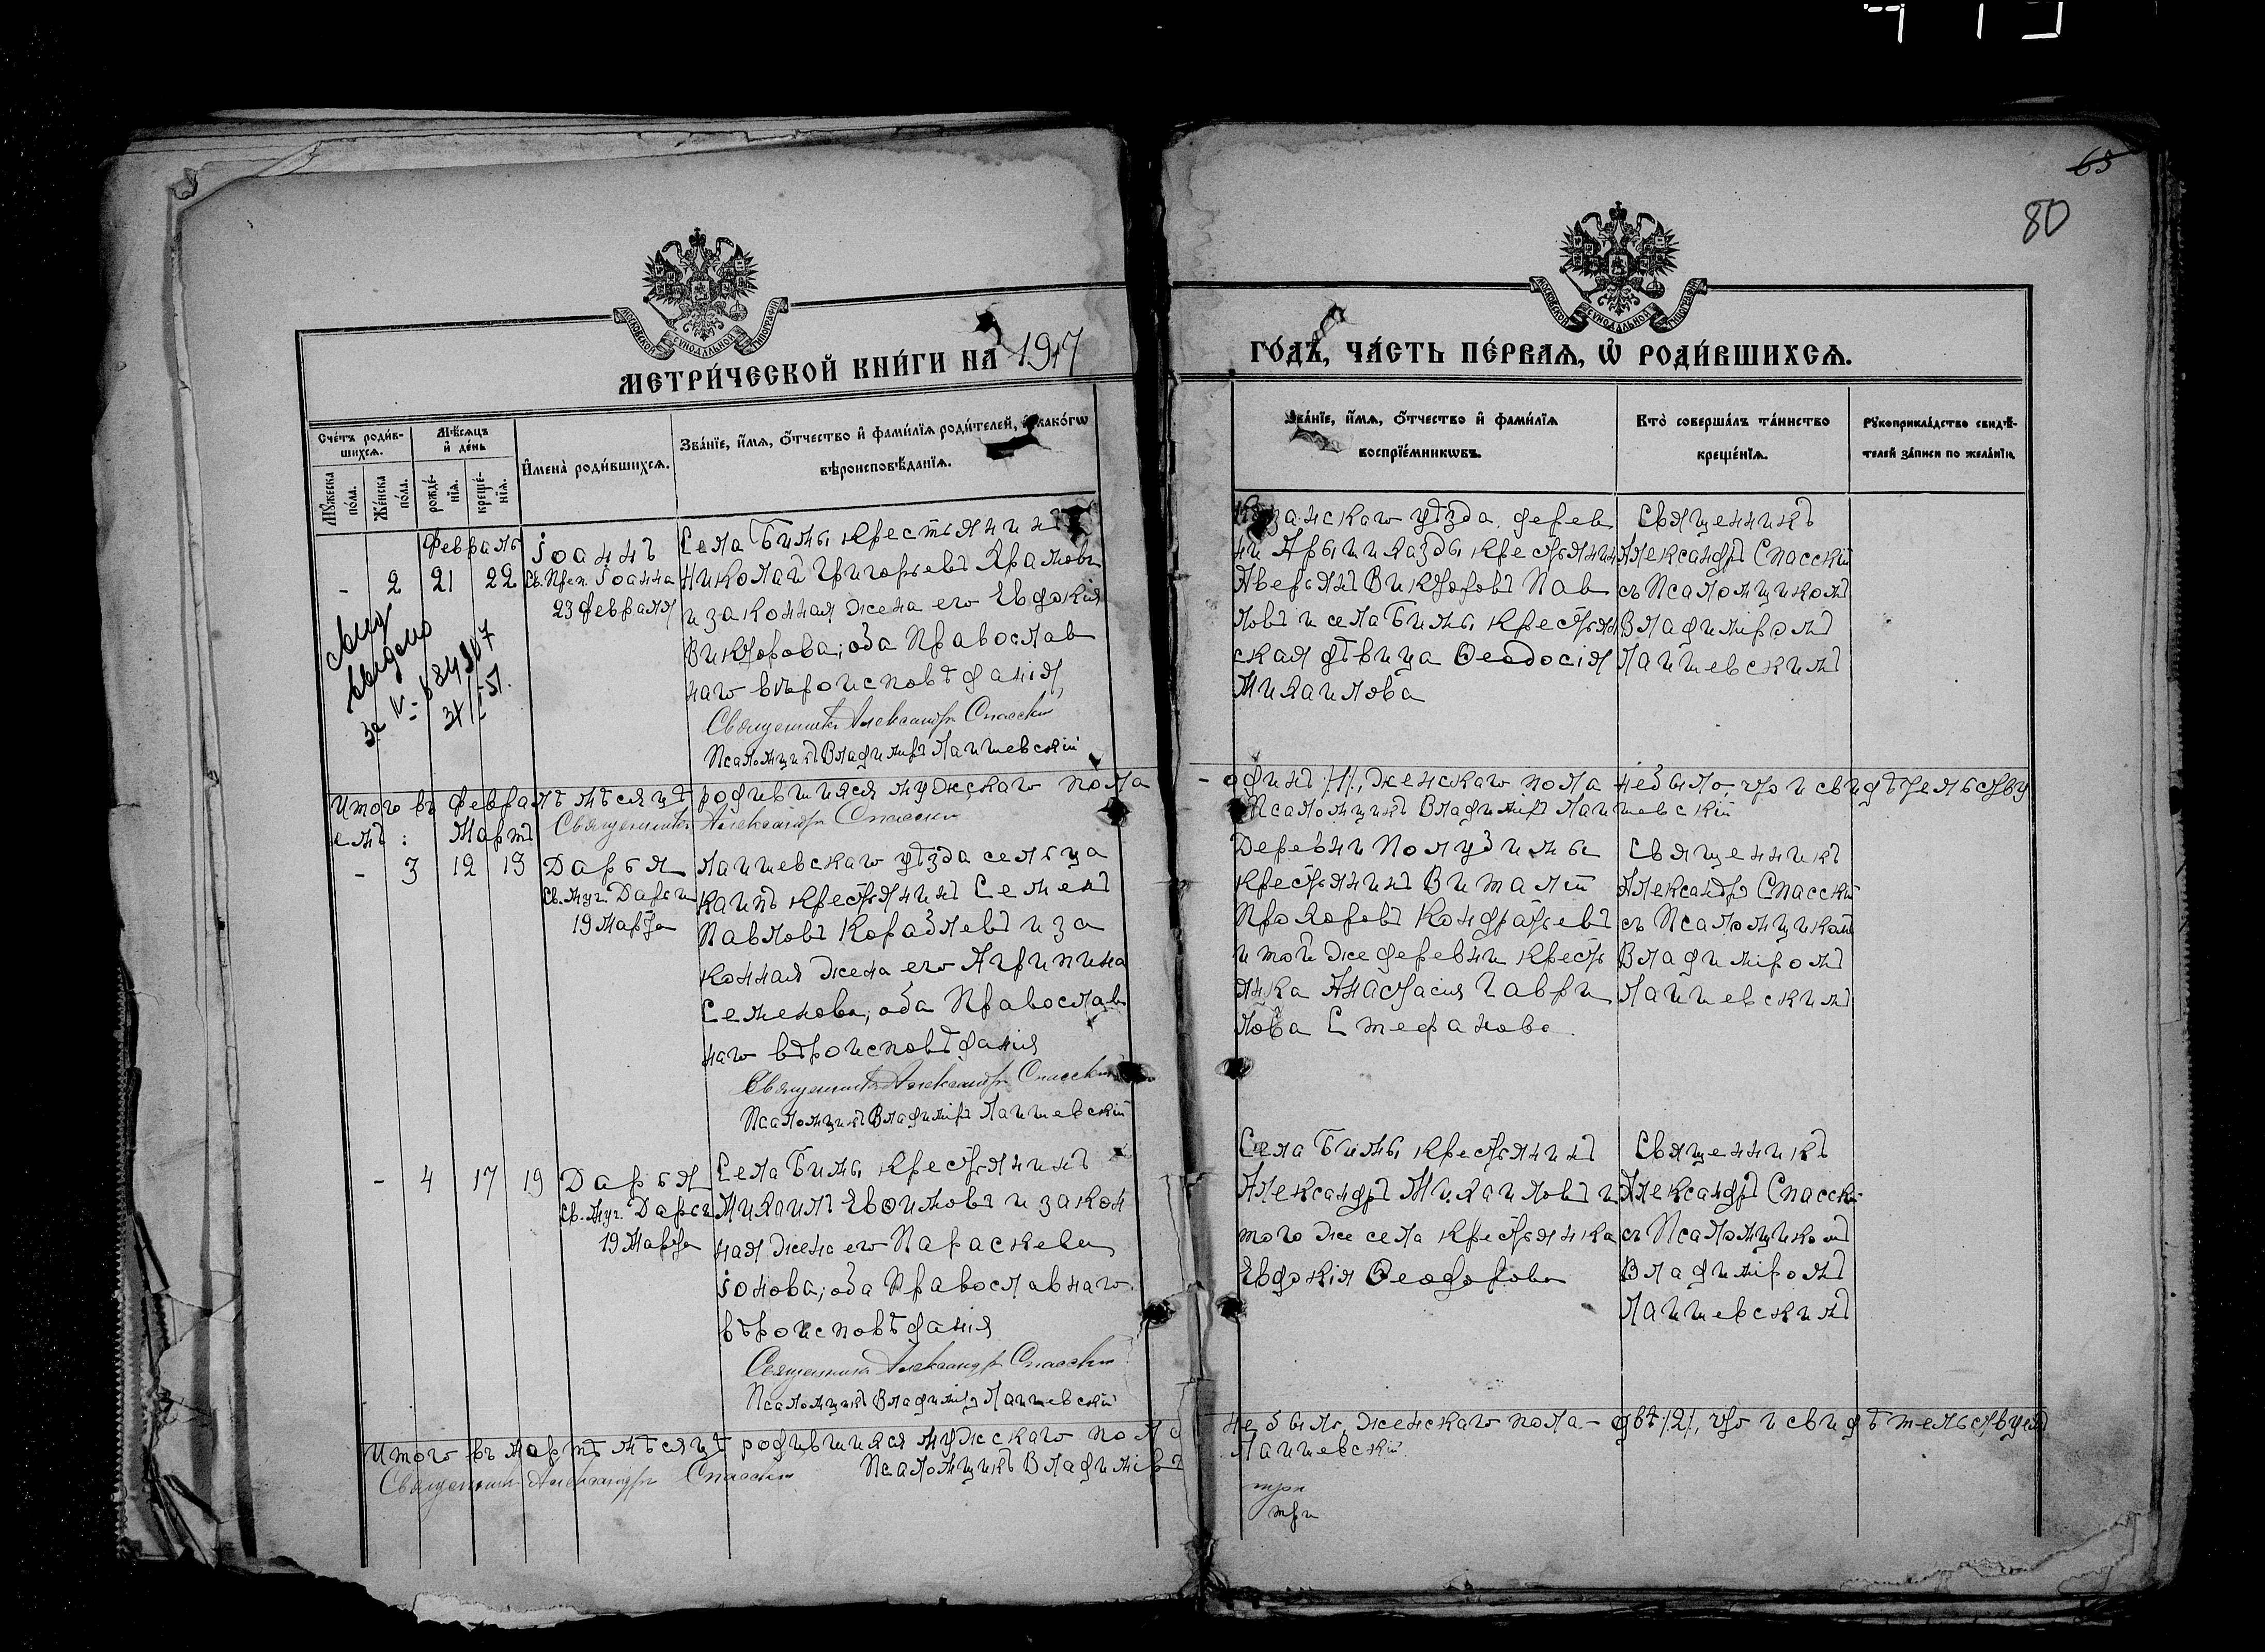 65
80
МОСКОВСКОЙ СѴНОДАЛЬНОЙ ТИПОГРАФІИ
МОСКОВСКОЙ СѴНОДАЛЬНОЙ ТИПОГРАФІИ
МЕТРИ́ЧЕСКОЙ КНИ́ГИ НА 1917
ГО́ДЪ, ЧА́СТЬ ПЕ́РВАѦ, Ѡ҆ РОДИ́ВШИХСѦ.
Сче́тъ роди́в-
шихсѧ.
Мꙋ́жеска
по́ла.
Же́нска
по́ла.
Мѣ́сѧцъ
и҆ де́нь
рожде́-
нїѧ.
креще́-
нїѧ.
И҆мена̀ роди́вшихсѧ.
Зва́нїе, и҆́мѧ, ѻ҆́тчество и҆ фами́лїѧ роди́телей, и҆ како́гѡ
вѣроисповѣ́данїѧ.
Зва́нїе, и҆́мѧ, ѻ҆́тчество и҆ фами́лїѧ
воспрїе́мникѡвъ.
Кто̀ соверша́лъ та́инство
креще́нїѧ.
Рꙋкоприкла́дство свидѣ́-
телей за́писи по жела́нїю.
Февраль
- 2 21 22
Іоаннъ
Св. Преп. Іоанна
23 Февраля
Села Бимы крестьянинъ
Николай Григорьевъ Храмовъ
и законная жена его Евдокія
Викторова; оба Православ
наго вѣроисповѣданія,
Священникъ Александръ Спасскій
Псаломщикъ Владиміръ Лаишевскій
Казанскаго уѣзда, дерев
ни Арышхазды крестьянинъ
Аверьянъ Викторовъ Пав
ловъ и села Бимы крестьян
ская дѣвица Ѳеодосія
Михаилова
Священникъ
Александръ Спасскій
съ Псаломщикомъ
Владиміромъ
Лаишевскимъ
выдано
Итого въ Февралѣ мѣсяцѣ родившихся мужскаго пола - одинъ /1/, женскаго пола небыло, что и свидѣтельству
емъ: Священникъ Александръ Спасскій Псаломщикъ Владиміръ Лаишевскій
Мартъ
- 3 12 13
Дарья
Св. Муч. Дарьи
19 Марта
Лаишевскаго уѣзда сельца
Каипъ крестьянинъ Семенъ
Павловъ Кораблевъ и за
конная жена его Агрипина
Семенова; оба Православ
наго вѣроисповѣданія
Священникъ Александръ Спасскій
Псаломщикъ Владиміръ Лаишевскій
Деревни Полузимы
крестьянинъ Виталій
Прохоровъ Кондратьевъ
и той же деревни кресть
янка Анастасія Гаври
лова Стефанова.
Священникъ
Александръ Спасскій
съ Псаломщикомъ
Владиміромъ
Лаишевскимъ
- 4 17 19
Дарья
Св. Муч. Дарьи
19 Марта
Села Бимы крестьянинъ
Михаилъ Евѳимовъ и закон
ная жена его Параскева
Іонова; оба Православнаго
вѣроисповѣданія
Священникъ Александръ Спасскій
Псаломщикъ Владиміръ Лаишевскій
Села Бимы крестьянинъ
Александръ Михаиловъ и
того же села крестьянка
Евдокія Ѳеодорова
Священникъ
Александръ Спасскій
съ Псаломщикомъ
Владиміромъ
Лаишевскимъ
Итого въ мартѣ мѣсяцѣ родившихся мужскаго пола не было, женскаго пола - двѣ /2/, что и свидѣтельствуемъ
Священникъ Александръ Спасскій Псаломщикъ Владиміръ Лаишевскій
три
три